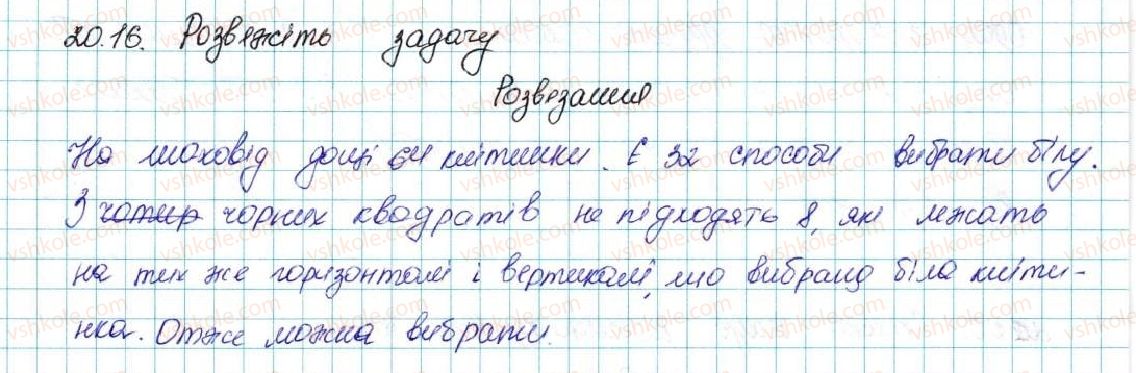 20.16. Розвяжіть задачу
Розвязання
На шаховід дошці 64 клітинки. Є 32 способи вибрати білу.
З чотир чорних квадратів не підходять 8, які лежать
на тих же горизонталі і вертикалі, що вибрана біла кліти-
нка. Отже можна вибрати.